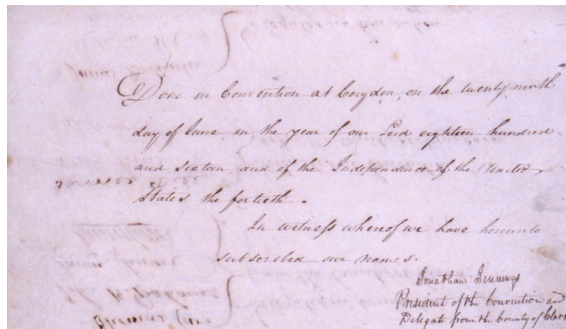 Done in Convention at Corydon, on the twenty ninth
day of June in the year of our Lord eighteen hundred
and sixteen, and of the Independence of the United
States the fortieth.
In witness whereof we have hereunto
subscribed our names.
Jonathan Jennings
President of the Convention and
Delegate from the County of Clark